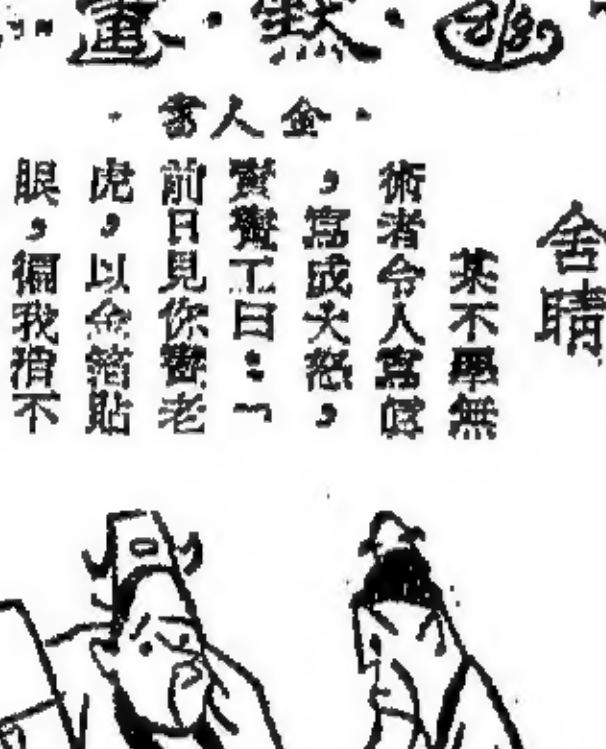 幽·默·畫
舍睛
某不學無
術者令人寫眞
，寫成大怒，
責畫工曰：「
前日見你畫老
虎，以金箔貼
眼，偏我消不